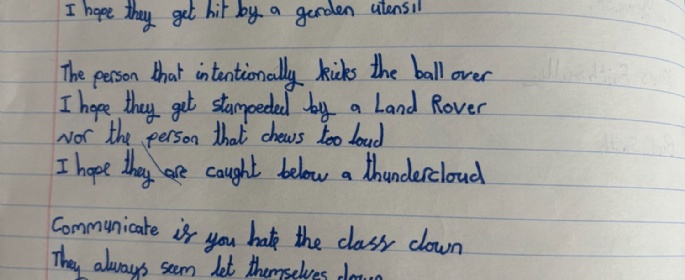 I hope they get hit by a garden utensil
The person that intentionally kicks the ball over
I hope they get stampeeded by a Land Rover
Nor the person that chews too loud
I hope they are caught below a thundercloud
Communicate is you hate the class clown
They always seem let themselves down